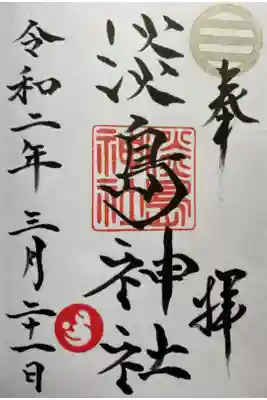 奉拝
淡島神社
淡島神社
令和二年三月二十一日